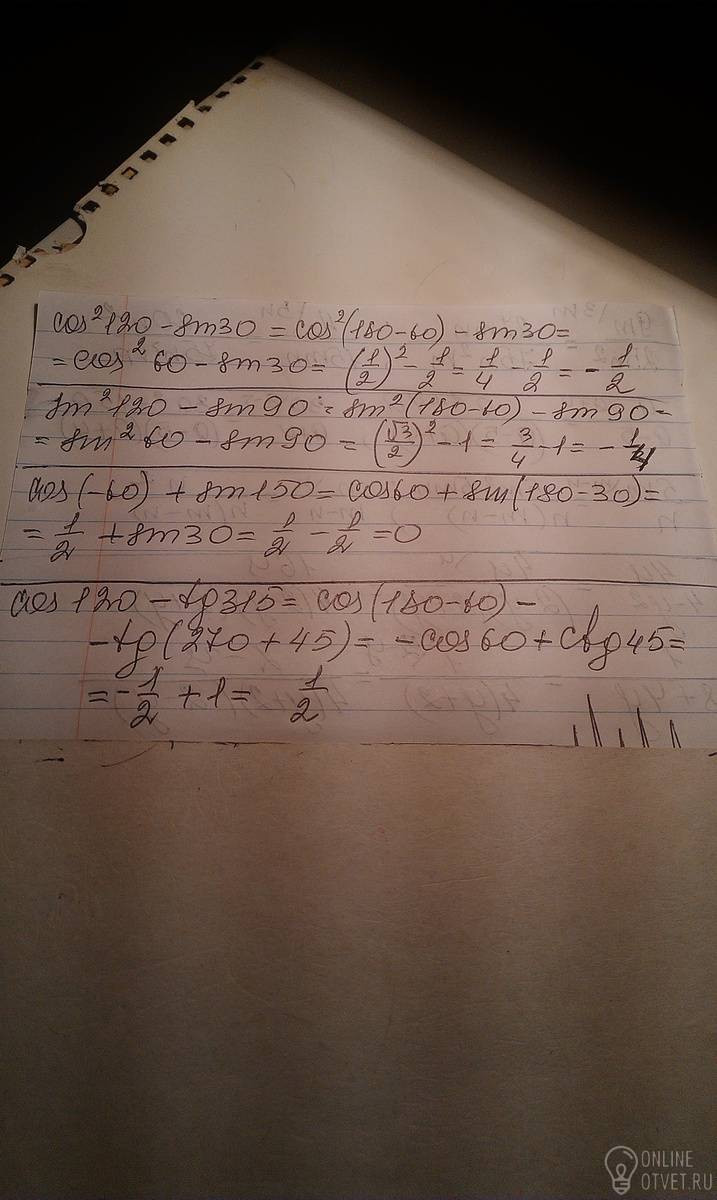 cos²120 - sin30 = cos²(180-60) - sin30 =
= cos²60 - sin30 = (1/2)² - 1/2 = 1/4 - 1/2 = - 1/2
sin²120 - sin90 = sin²(180-60) - sin90 =
= sin²60 - sin90 = (√3/2)² - 1 = 3/4 - 1 = - 1/4
cos(-60) + sin150 = cos60 + sin(180-30) =
= 1/2 + sin30 = 1/2 - 1/2 = 0
cos120 - tg315 = cos(180-60) -
- tg(270+45) = -cos60 + ctg45 =
= - 1/2 + 1 = 1/2
ONLINE
OTVET.RU